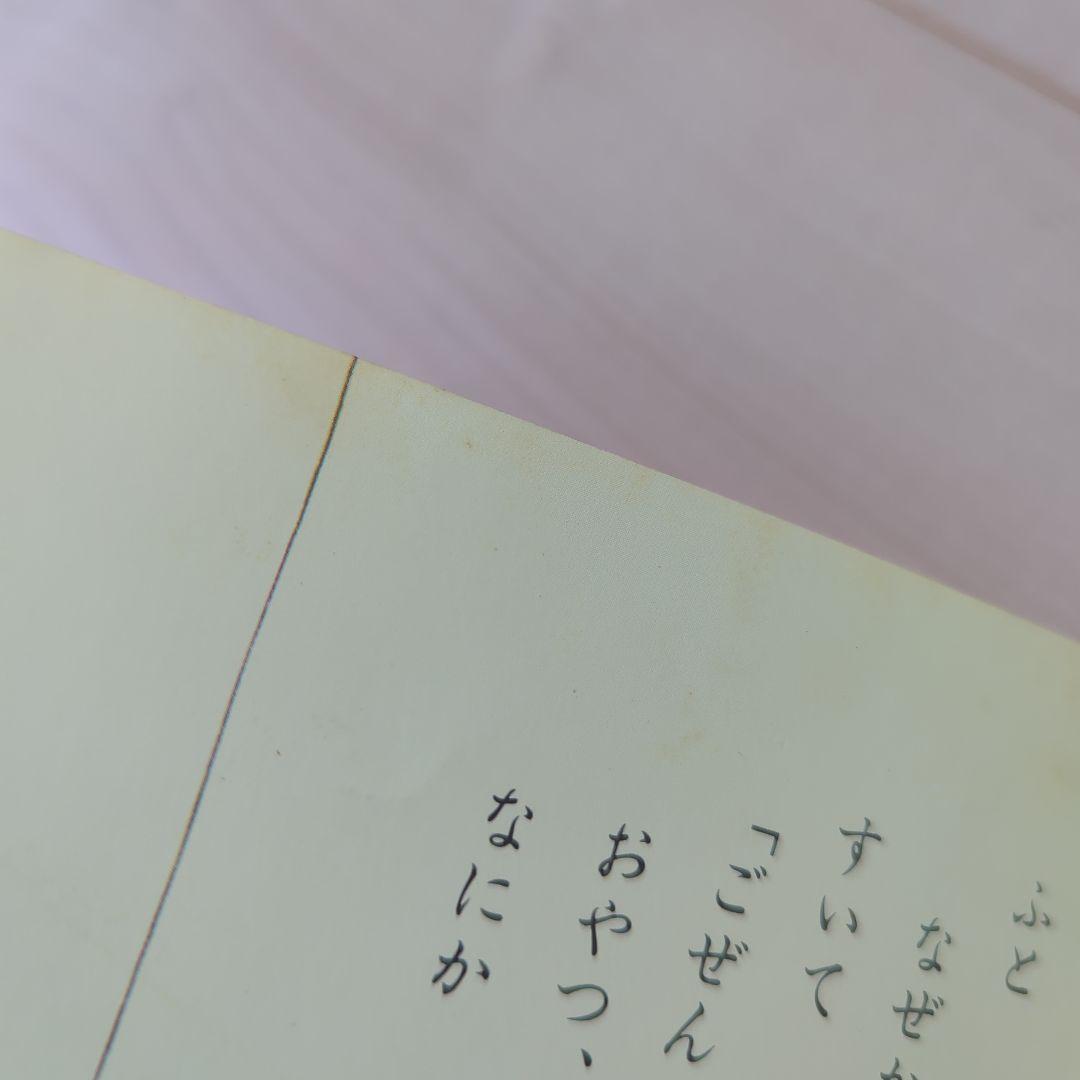 ふと
なぜか
すいて
「ごぜん
おやつ、
なにか